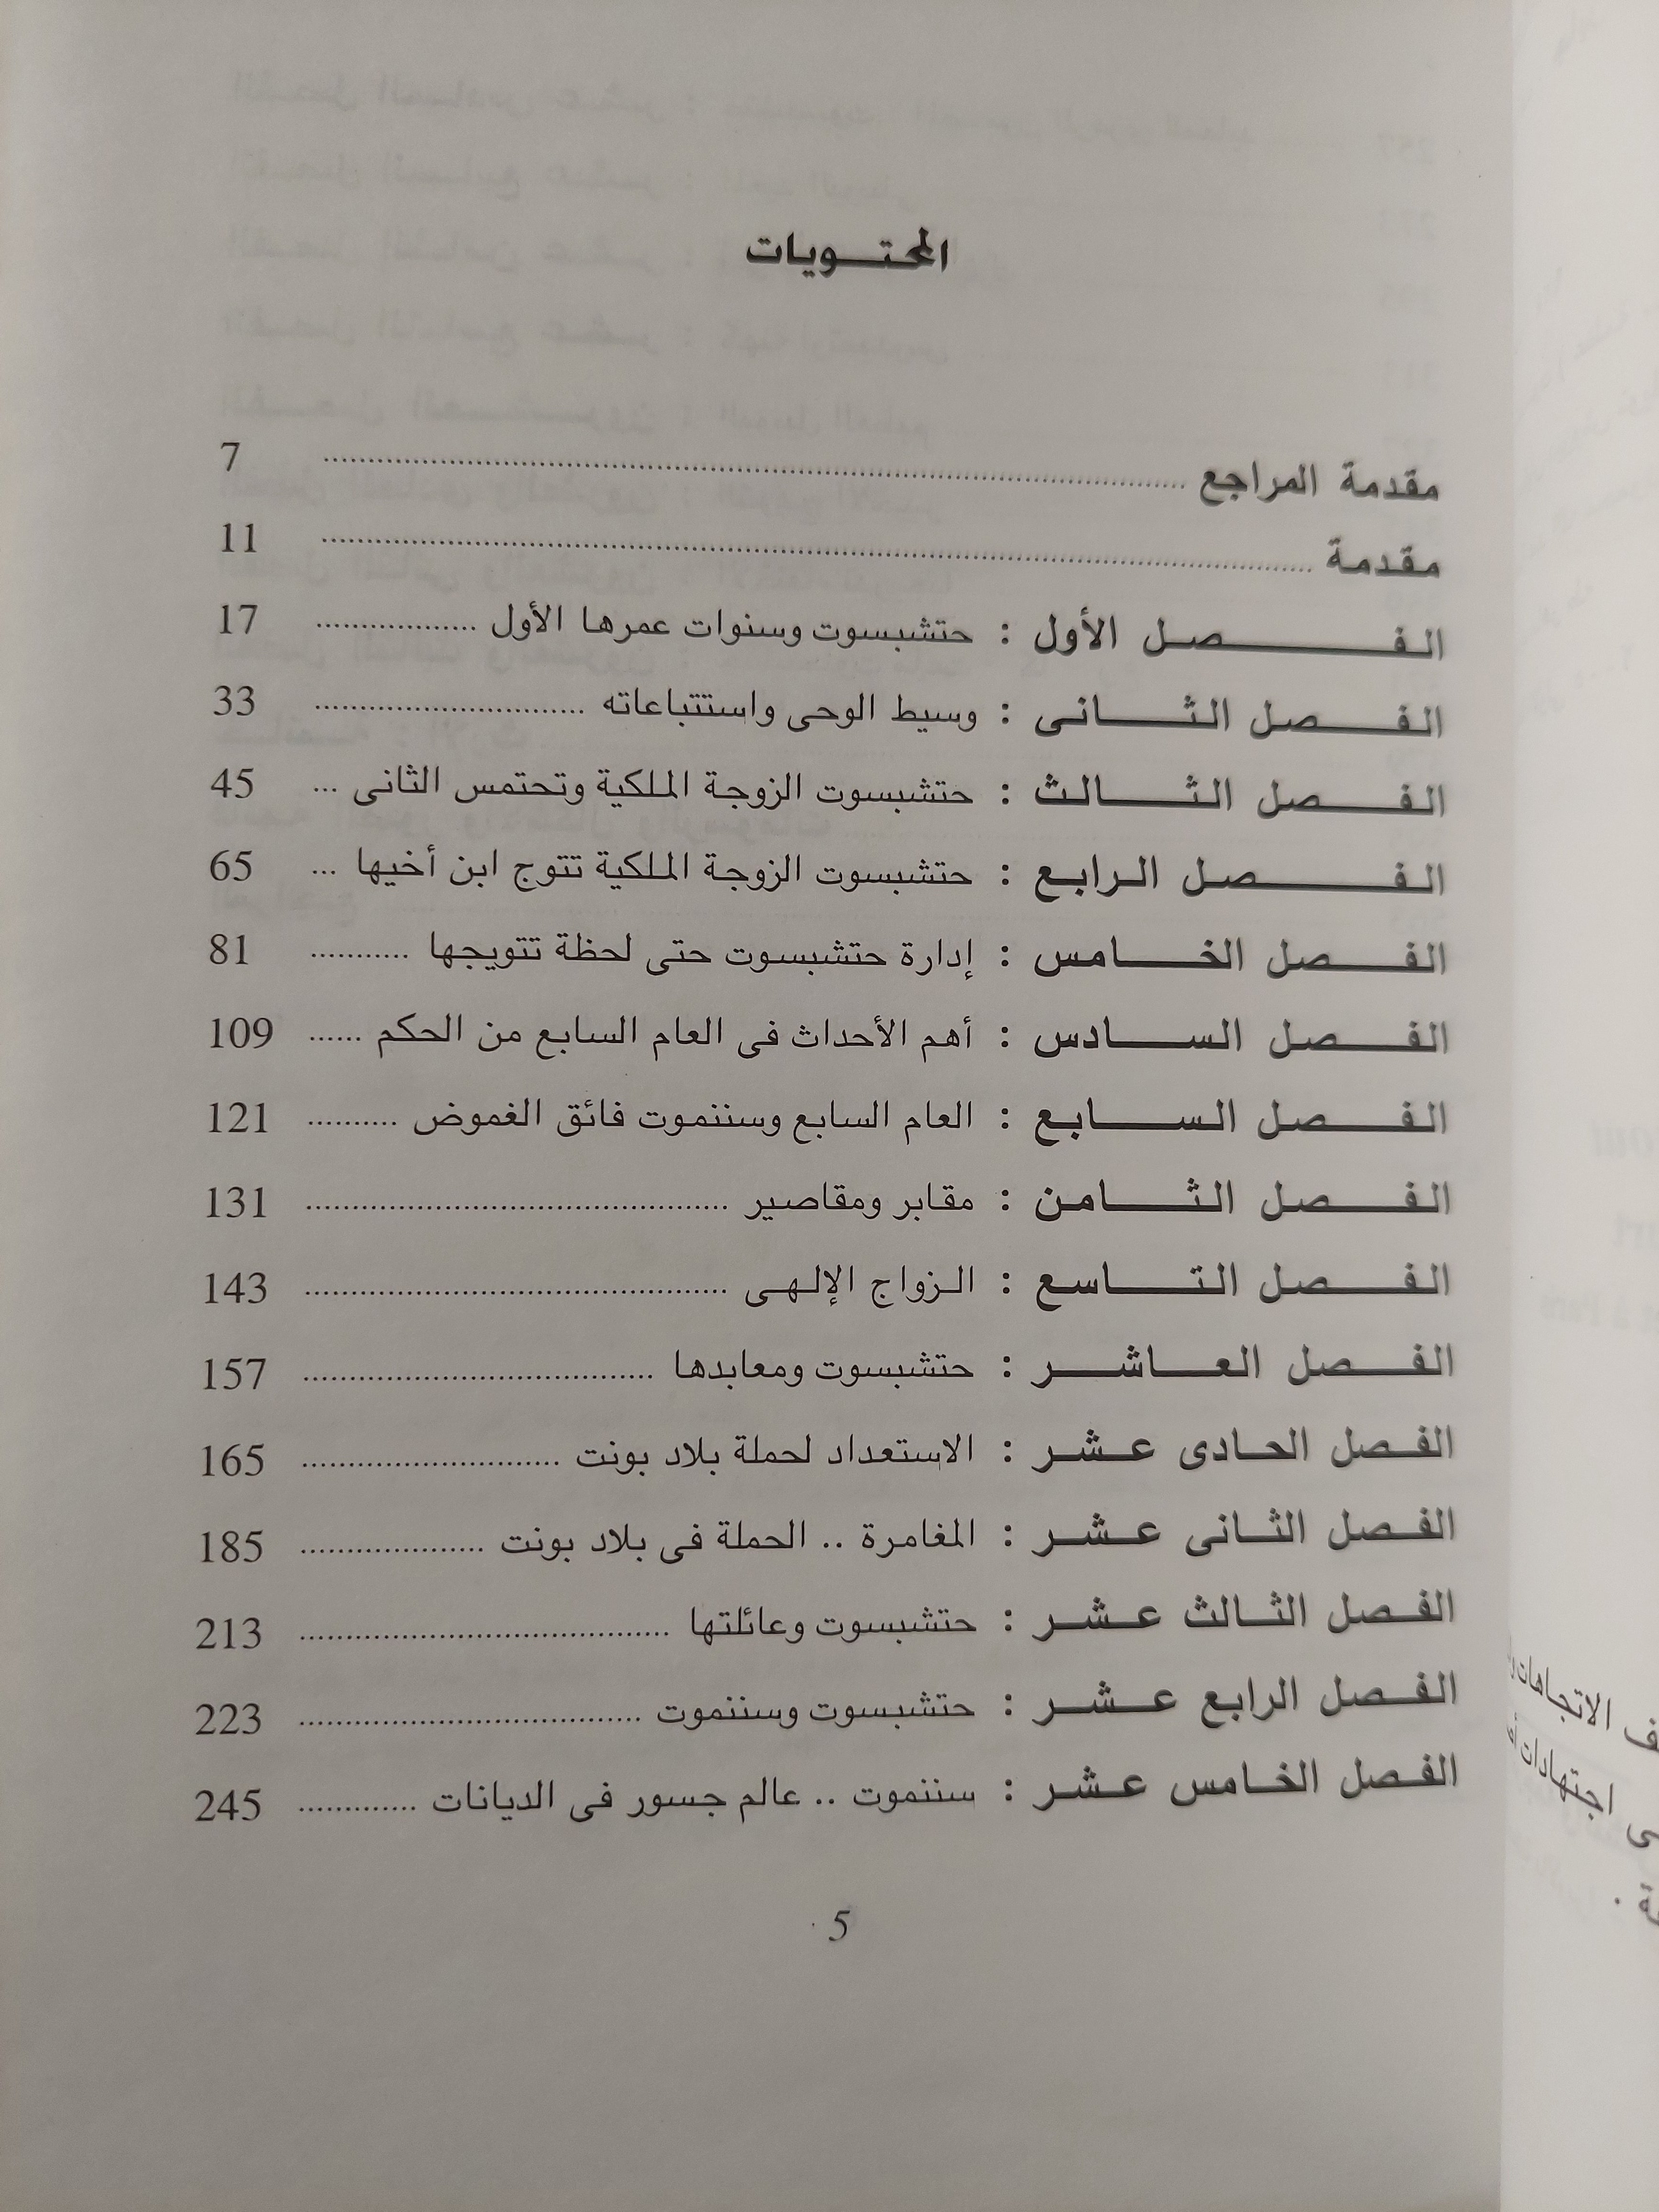 المحتويات
مقدمة المراجع ........ 7
مقدمة ........ 11
الفصل الأول : حتشبسوت وسنوات عمرها الأول ........ 17
الفصل الثانى : وسيط الوحى واستتباعاته ........ 33
الفصل الثالث : حتشبسوت الزوجة الملكية وتحتمس الثانى ... 45
الفصل الرابع : حتشبسوت الزوجة الملكية تتوج ابن أخيها ... 65
الفصل الخامس : إدارة حتشبسوت حتى لحظة تتويجها ........ 81
الفصل السادس : أهم الأحداث فى العام السابع من الحكم ...... 109
الفصل السابع : العام السابع وسننموت فائق الغموض ........ 121
الفصل الثامن : مقابر ومقاصير ........ 131
الفصل التاسع : الزواج الإلهى ........ 143
الفصل العاشر : حتشبسوت ومعابدها ........ 157
الفصل الحادى عشر : الاستعداد لحملة بلاد بونت ........ 165
الفصل الثانى عشر : المغامرة .. الحملة فى بلاد بونت ........ 185
الفصل الثالث عشر : حتشبسوت وعائلتها ........ 213
الفصل الرابع عشر : حتشبسوت وسننموت ........ 223
الفصل الخامس عشر : سننموت .. عالم جسور فى الديانات ........ 245
5
الاتجاهات
اجتهادات